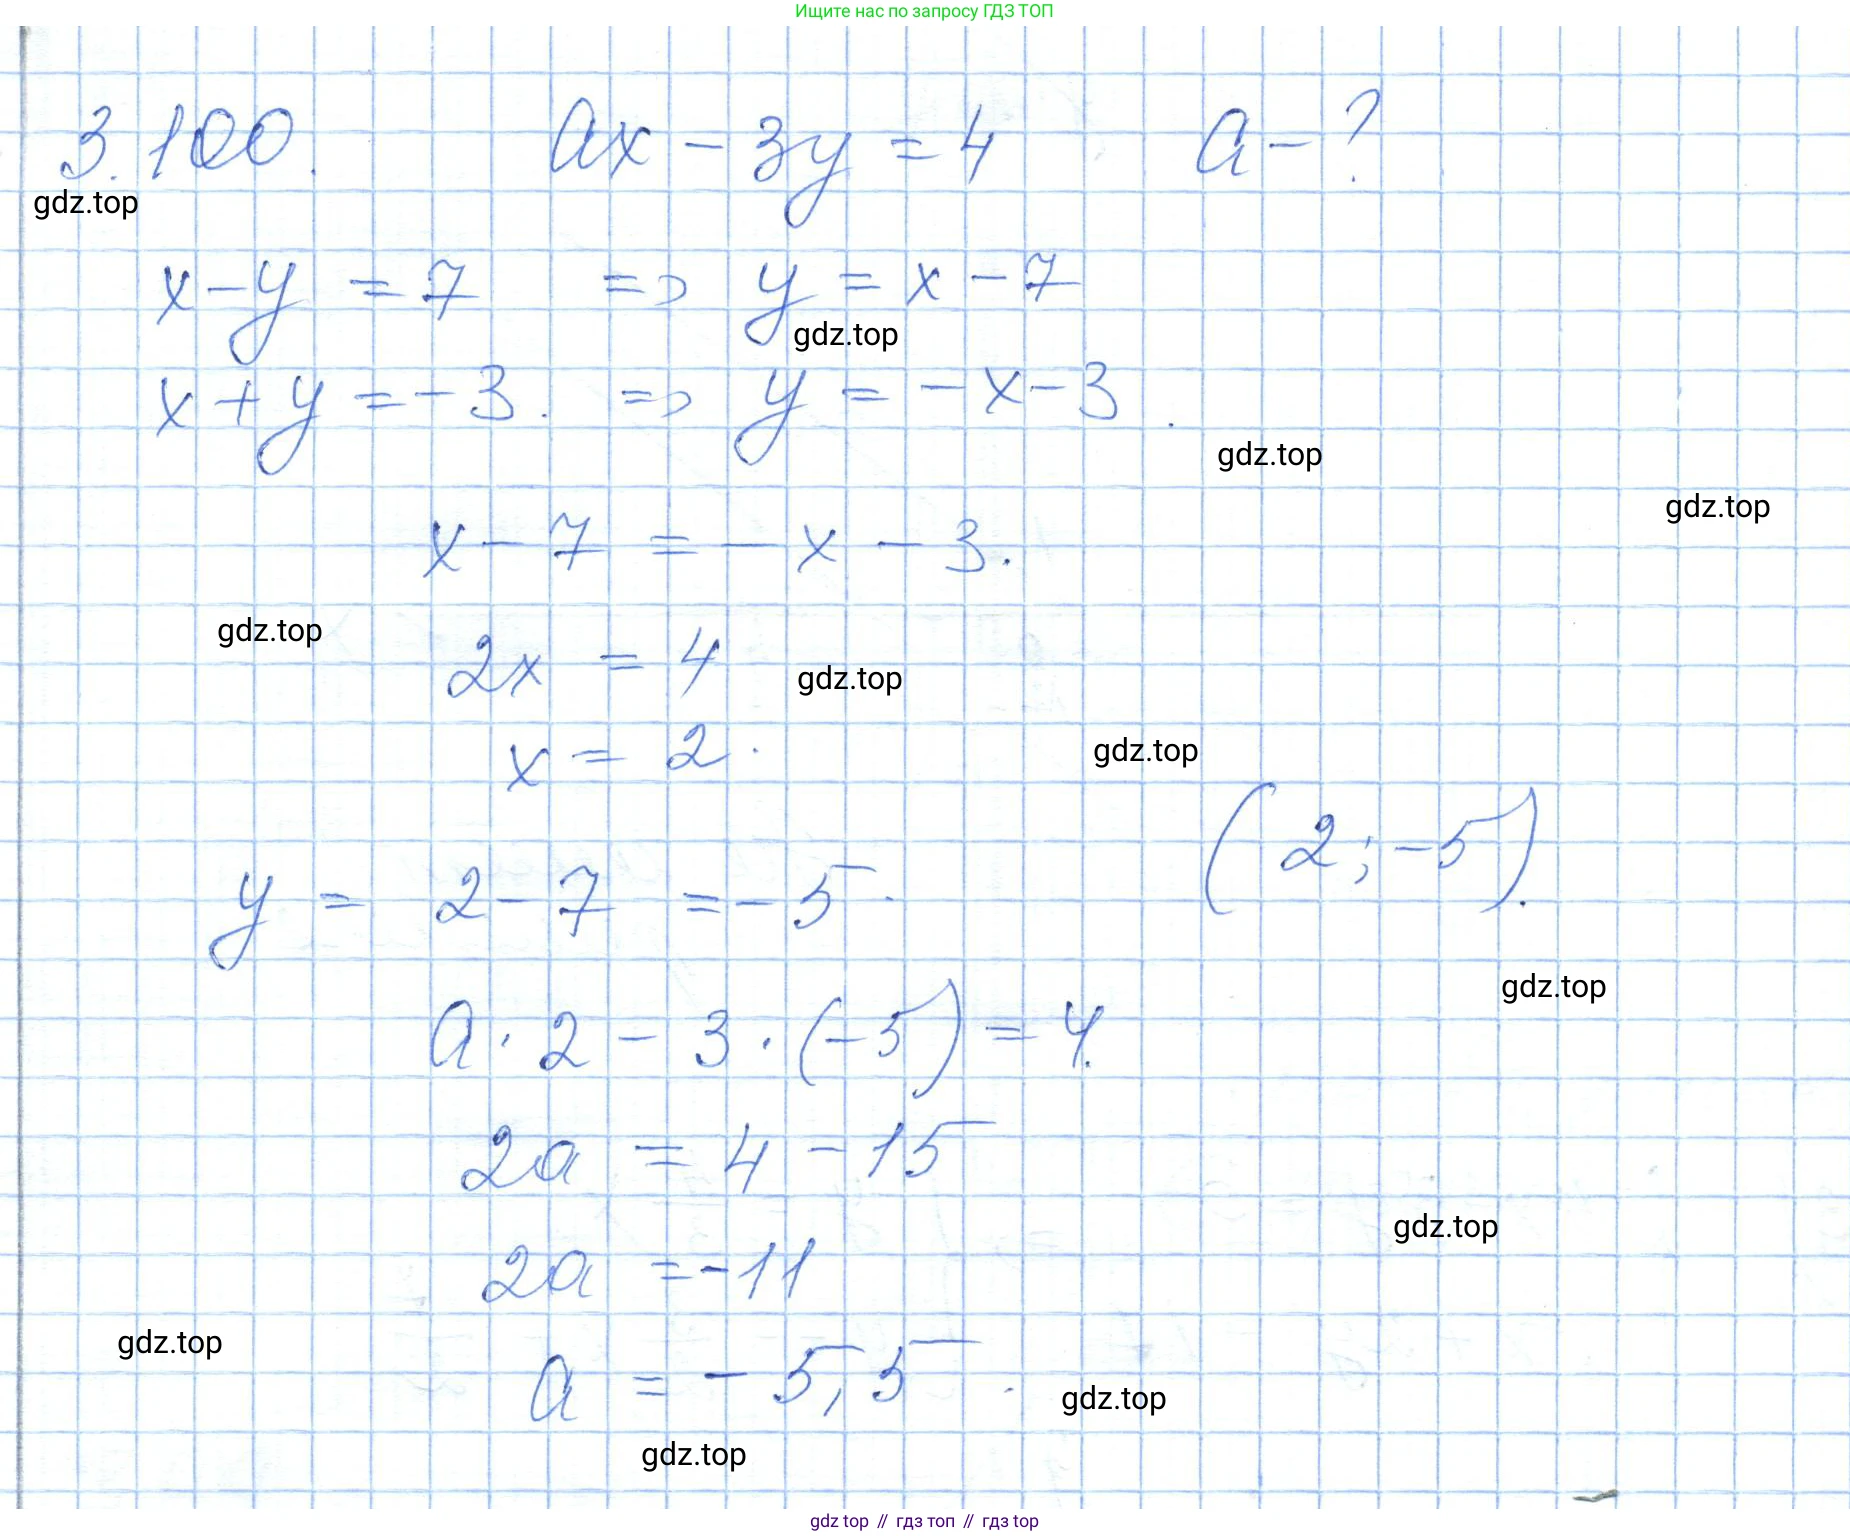 Ищите нас по запросу ГДЗ ТОП
3.100. ax - 3y = 4 a - ?
gdz.top
x - y = 7 => y = x - 7
gdz.top
x + y = -3. => y = -x - 3.
gdz.top
gdz.top
x - 7 = -x - 3.
gdz.top
2x = 4
gdz.top
x = 2.
gdz.top
(2; -5).
y = 2 - 7 = -5.
gdz.top
a · 2 - 3 · (-5) = 4.
2a = 4 - 15
gdz.top
2a = -11
gdz.top
a = -5,5.
gdz.top
gdz.top
gdz top // гдз топ // gdz top